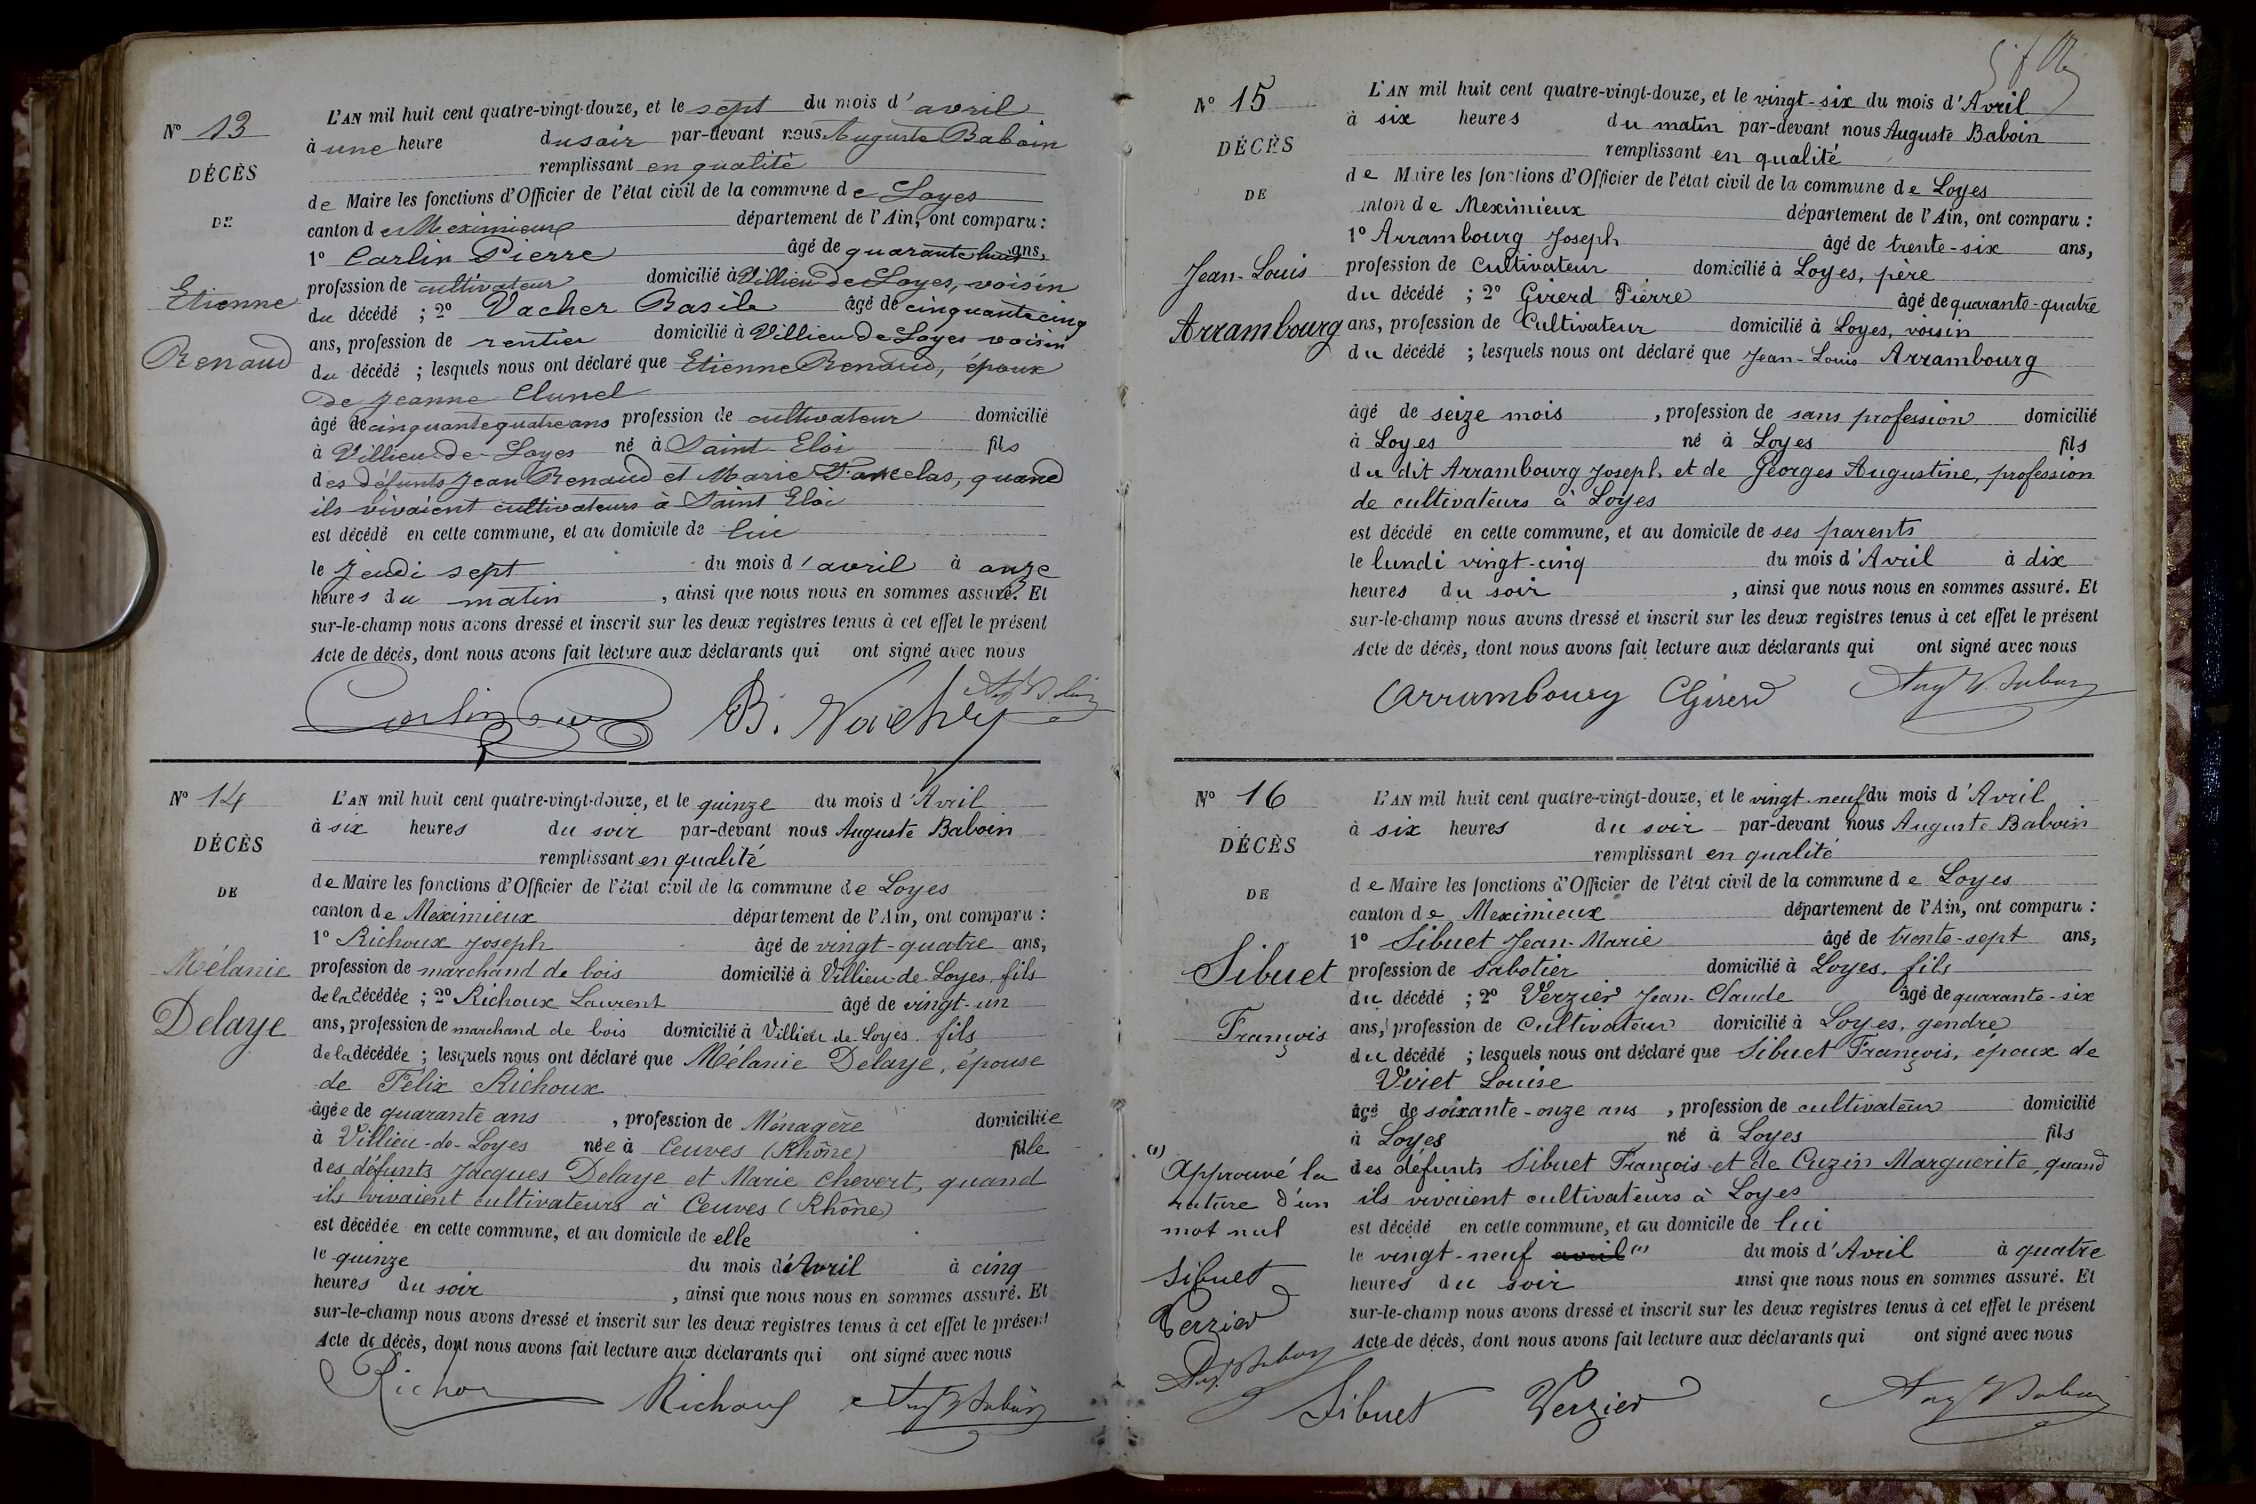 N° 13
DÉCÈS
DE
Etienne
Renaud
L'AN mil huit cent quatre-vingt-douze, et le sept du mois d'avril
à une heure du soir par-devant nous Auguste Baboin
remplissant en qualité
de Maire les fonctions d'Officier de l'état civil de la commune de Loyes
canton de Meximieux département de l'Ain, ont comparu :
1° Carlin Pierre âgé de quarante huit ans,
profession de cultivateur domicilié à Villieu de Loyes, voisin
du décédé ; 2° Vacher Basile âgé de cinquante cinq
ans, profession de rentier domicilié à Villieu de Loyes voisin
du décédé ; lesquels nous ont déclaré que Etienne Renaud, époux
de Jeanne Clunel
âgé de cinquante quatre ans profession de cultivateur domicilié
à Villieu-de-Loyes né à Saint Eloi fils
des défunts Jean Renaud et Marie quand
ils vivaient cultivateurs à Saint Eloi
est décédé en cette commune, et au domicile de lui
le Jeudi sept du mois d'avril à onze
heures du matin, ainsi que nous nous en sommes assuré. Et
sur-le-champ nous avons dressé et inscrit sur les deux registres tenus à cet effet le présent
Acte de décès, dont nous avons fait lecture aux déclarants qui ont signé avec nous
B. Vacher
N° 14
DÉCÈS
DE
Mélanie
Delaye
L'AN mil huit cent quatre-vingt-douze, et le quinze du mois d'Avril
à six heures du soir par-devant nous Auguste Baboin
remplissant en qualité
de Maire les fonctions d'Officier de l'état civil de la commune de Loyes
canton de Meximieux département de l'Ain, ont comparu :
1° Richoux Joseph âgé de vingt-quatre ans,
profession de marchand de bois domicilié à Villieu-de-Loyes, fils
de la décédée ; 2° Richoux Laurent âgé de vingt-un
ans, profession de marchand de bois domicilié à Villieu-de-Loyes fils
de la décédée ; lesquels nous ont déclaré que Mélanie Delaye, épouse
de Félix Richoux
âgée de quarante ans, profession de Ménagère domiciliée
à Villieu-de-Loyes née à Ceuves (Rhône) fille
des défunts Jacques Delaye et Marie Chevert, quand
ils vivaient cultivateurs à Ceuves (Rhône)
est décédée en cette commune, et au domicile de elle
le quinze du mois d'Avril à cinq
heures du soir, ainsi que nous nous en sommes assuré. Et
sur-le-champ nous avons dressé et inscrit sur les deux registres tenus à cet effet le présent
Acte de décès, dont nous avons fait lecture aux déclarants qui ont signé avec nous
Richoux
N° 15
DÉCÈS
DE
Jean-Louis
Arrambourg
L'AN mil huit cent quatre-vingt-douze, et le vingt-six du mois d'Avril
à six heures du matin par-devant nous Auguste Baboin
remplissant en qualité
de Maire les fonctions d'Officier de l'état civil de la commune de Loyes
canton de Meximieux département de l'Ain, ont comparu :
1° Arrambourg Joseph âgé de trente-six ans,
profession de Cultivateur domicilié à Loyes, père
du décédé ; 2° Girerd Pierre âgé de quarante-quatre
ans, profession de Cultivateur domicilié à Loyes, voisin
du décédé ; lesquels nous ont déclaré que Jean-Louis Arrambourg
âgé de seize mois, profession de sans profession domicilié
à Loyes né à Loyes fils
du dit Arrambourg Joseph et de Georges Augustine, profession
de cultivateurs à Loyes
est décédé en cette commune, et au domicile de ses parents
le lundi vingt-cinq du mois d'Avril à dix
heures du soir, ainsi que nous nous en sommes assuré. Et
sur-le-champ nous avons dressé et inscrit sur les deux registres tenus à cet effet le présent
Acte de décès, dont nous avons fait lecture aux déclarants qui ont signé avec nous
Arrambourg Girerd
N° 16
DÉCÈS
DE
Sibuet
François
L'AN mil huit cent quatre-vingt-douze, et le vingt-neuf du mois d'Avril
à six heures du soir par-devant nous Auguste Baboin
remplissant en qualité
de Maire les fonctions d'Officier de l'état civil de la commune de Loyes
canton de Meximieux département de l'Ain, ont comparu :
1° Sibuet Jean-Marie âgé de trente-sept ans,
profession de Sabotier domicilié à Loyes, fils
du décédé ; 2° Verzier Jean-Claude âgé de quarante-six
ans, profession de Cultivateur domicilié à Loyes, gendre
du décédé ; lesquels nous ont déclaré que Sibuet François, époux de
Viriet Louise
âgé de soixante-onze ans, profession de cultivateur domicilié
à Loyes né à Loyes fils
des défunts Sibuet François et de Cuzin Marguerite, quand
ils vivaient cultivateurs à Loyes
est décédé en cette commune, et au domicile de lui
le vingt-neuf avril (1) du mois d'Avril à quatre
heures du soir ainsi que nous nous en sommes assuré. Et
sur-le-champ nous avons dressé et inscrit sur les deux registres tenus à cet effet le présent
Acte de décès, dont nous avons fait lecture aux déclarants qui ont signé avec nous
(1)
Approuvé la
rature d'un
mot nul
Sibuet
Verzier
Sibuet Verzier